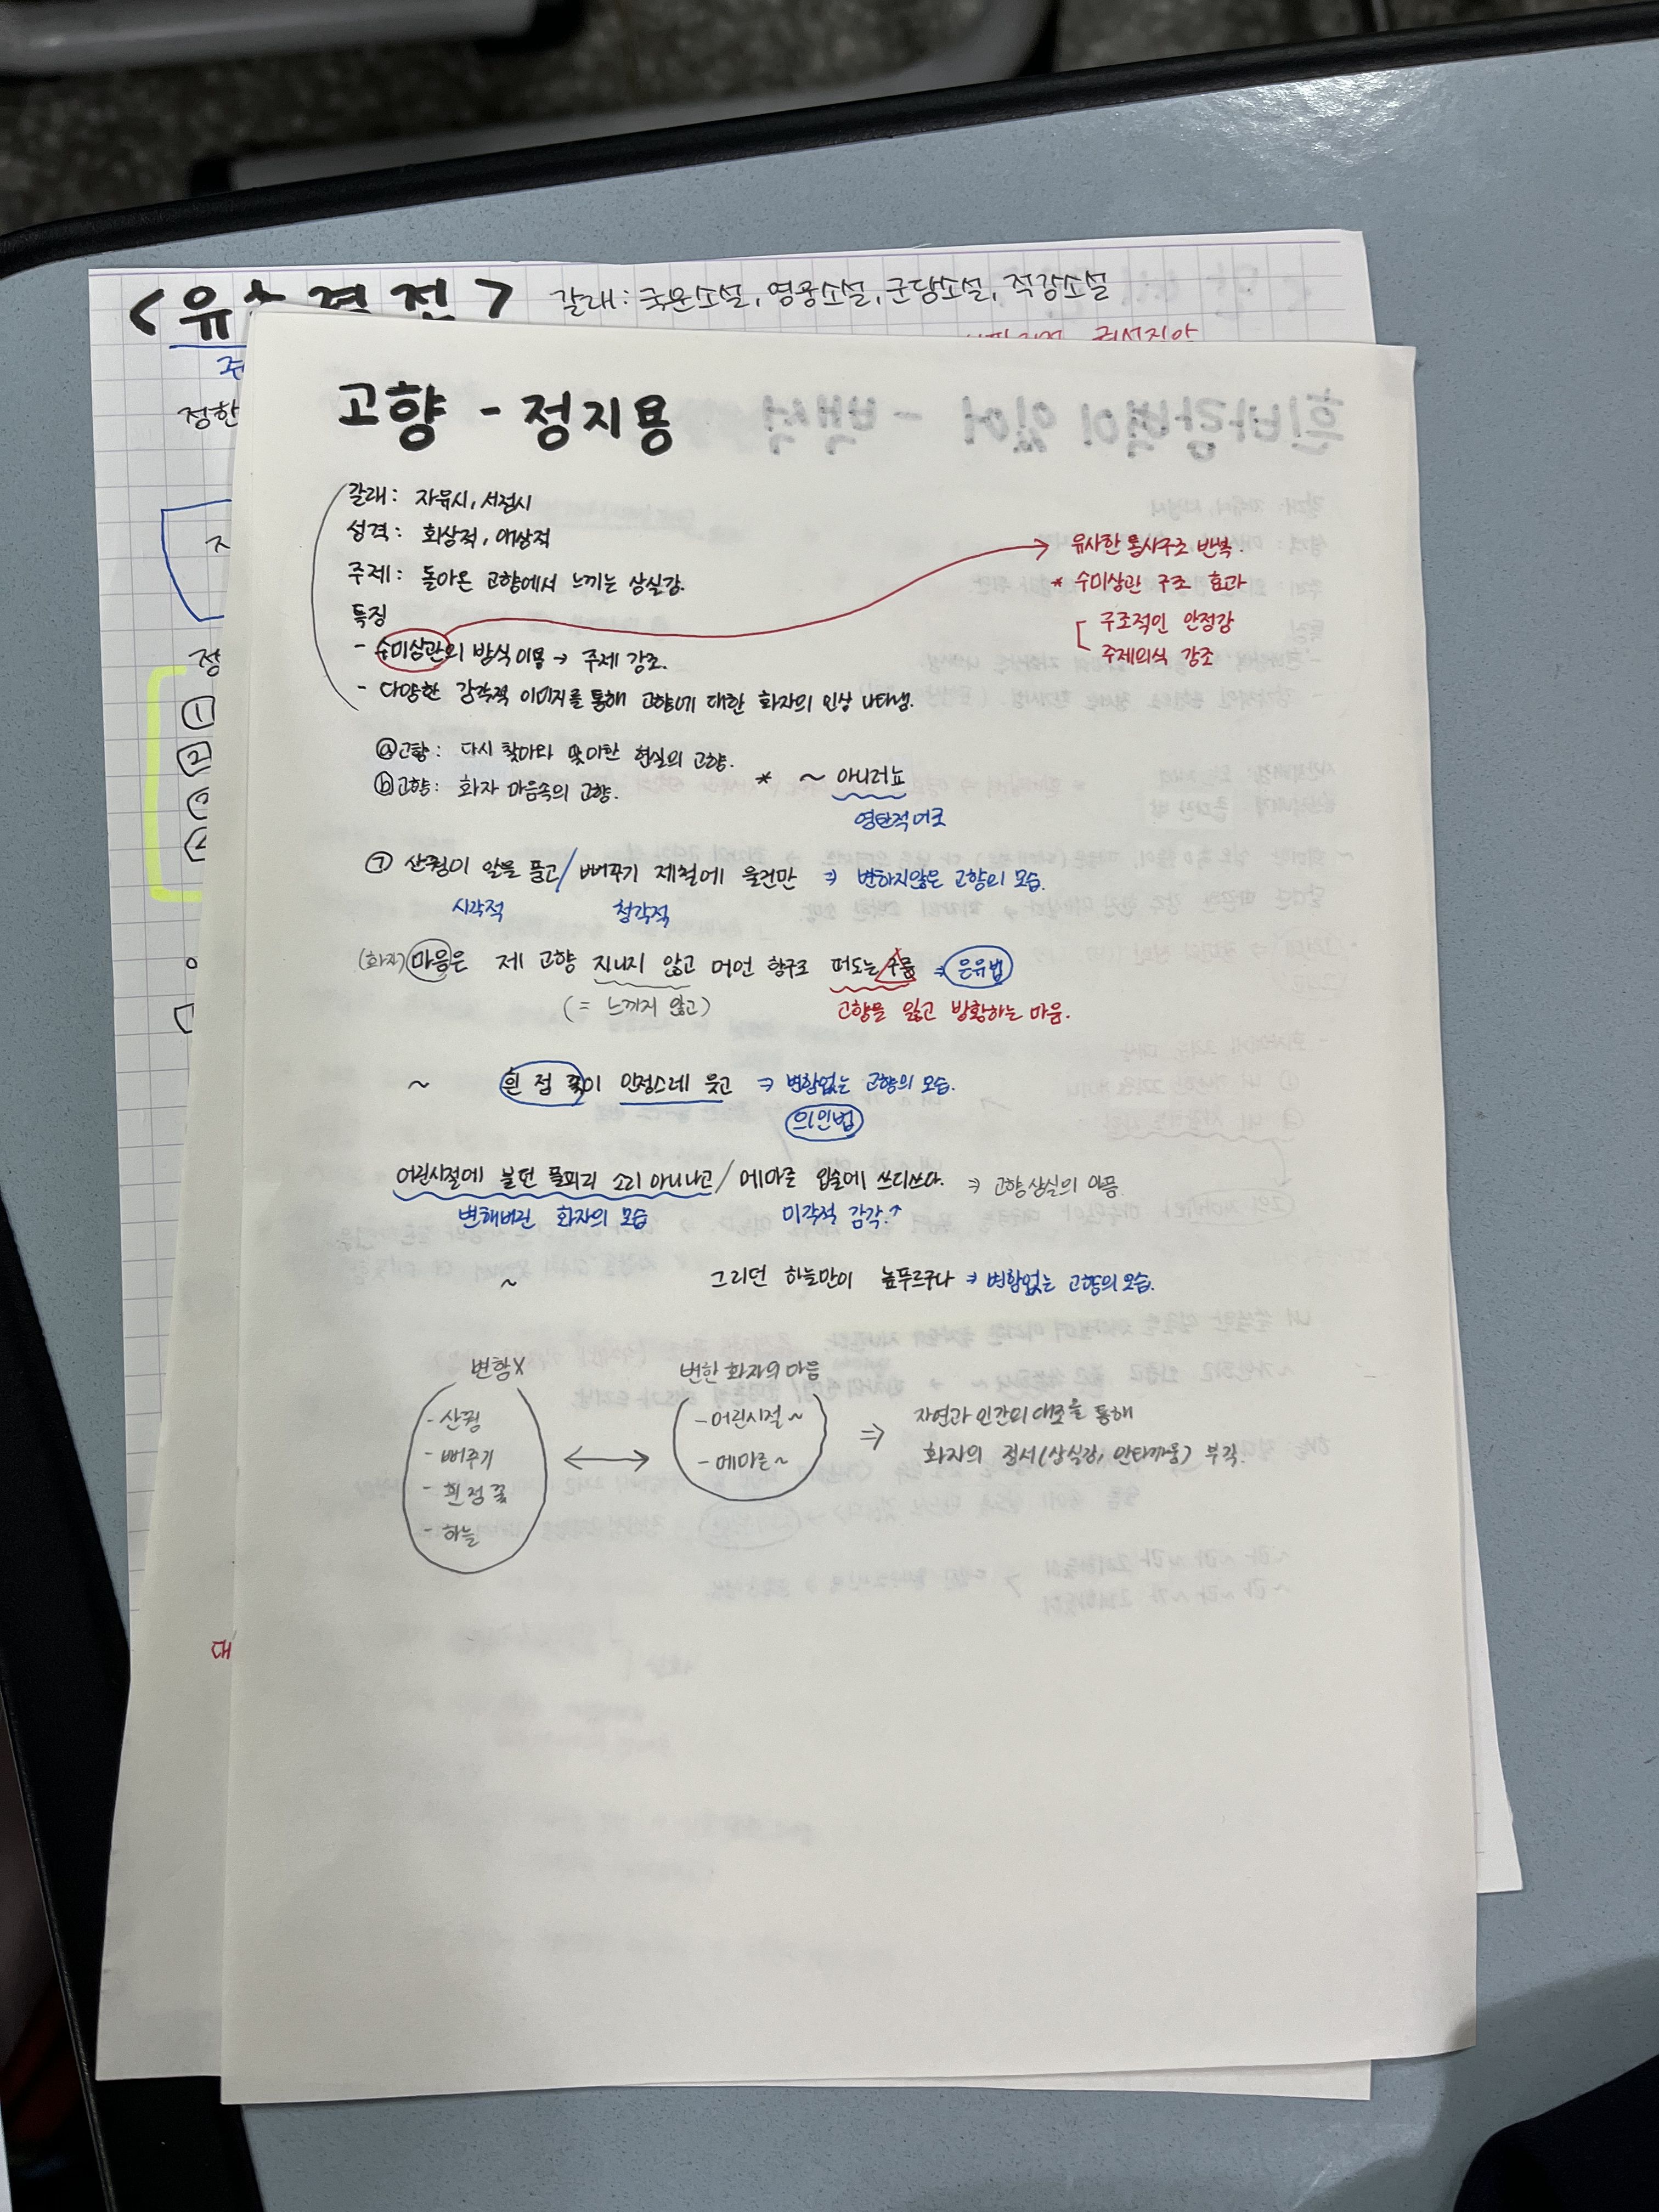 갈래: 국문소설, 영웅소설, 군담소설, 적강소설
정한
정
1
2
대
고향 - 정지용
갈래: 자유시, 서정시
성격: 회상적, 애상적
주제: 돌아온 고향에서 느끼는 상실감.
특징
- 수미상관의 방식 이용 → 주제 강조.
- 다양한 감각적 이미지를 통해 고향에 대한 화자의 인상 나타냄.
→ 유사한 통사구조 반복.
* 수미상관 구조 효과
구조적인 안정감
주제의식 강조
ⓐ고향: 다시 찾아와 맞이한 현실의 고향.
ⓑ고향: 화자 마음속의 고향.
* ~ 아니러뇨
영탄적 어조
㉠ 산꿩이 알을 품고/뻐꾸기 제철에 울건만 ⇒ 변하지않은 고향의 모습.
시각적 청각적
(화자) 마음은 제 고향 지니지 않고 머언 항구로 떠도는 구름 ⇒ 은유법
(= 느끼지 않고) 고향을 잃고 방황하는 마음.
~ 흰 점 꽃이 인정스레 웃고 ⇒ 변함없는 고향의 모습.
의인법
어린시절에 불던 풀피리 소리 아니나고/메마른 입술에 쓰디쓰다. ⇒ 고향 상실의 아픔
변해버린 화자의 모습 미각적 감각.↑
~ 그리던 하늘만이 높푸르구나 ⇒ 변함없는 고향의 모습.
변함X 변한 화자의 마음
- 산꿩
- 뻐꾸기
- 흰 점 꽃
- 하늘
- 어린시절~
- 메마른~
⇒ 자연과 인간의 대조를 통해
화자의 정서(상실감, 안타까움) 부각.